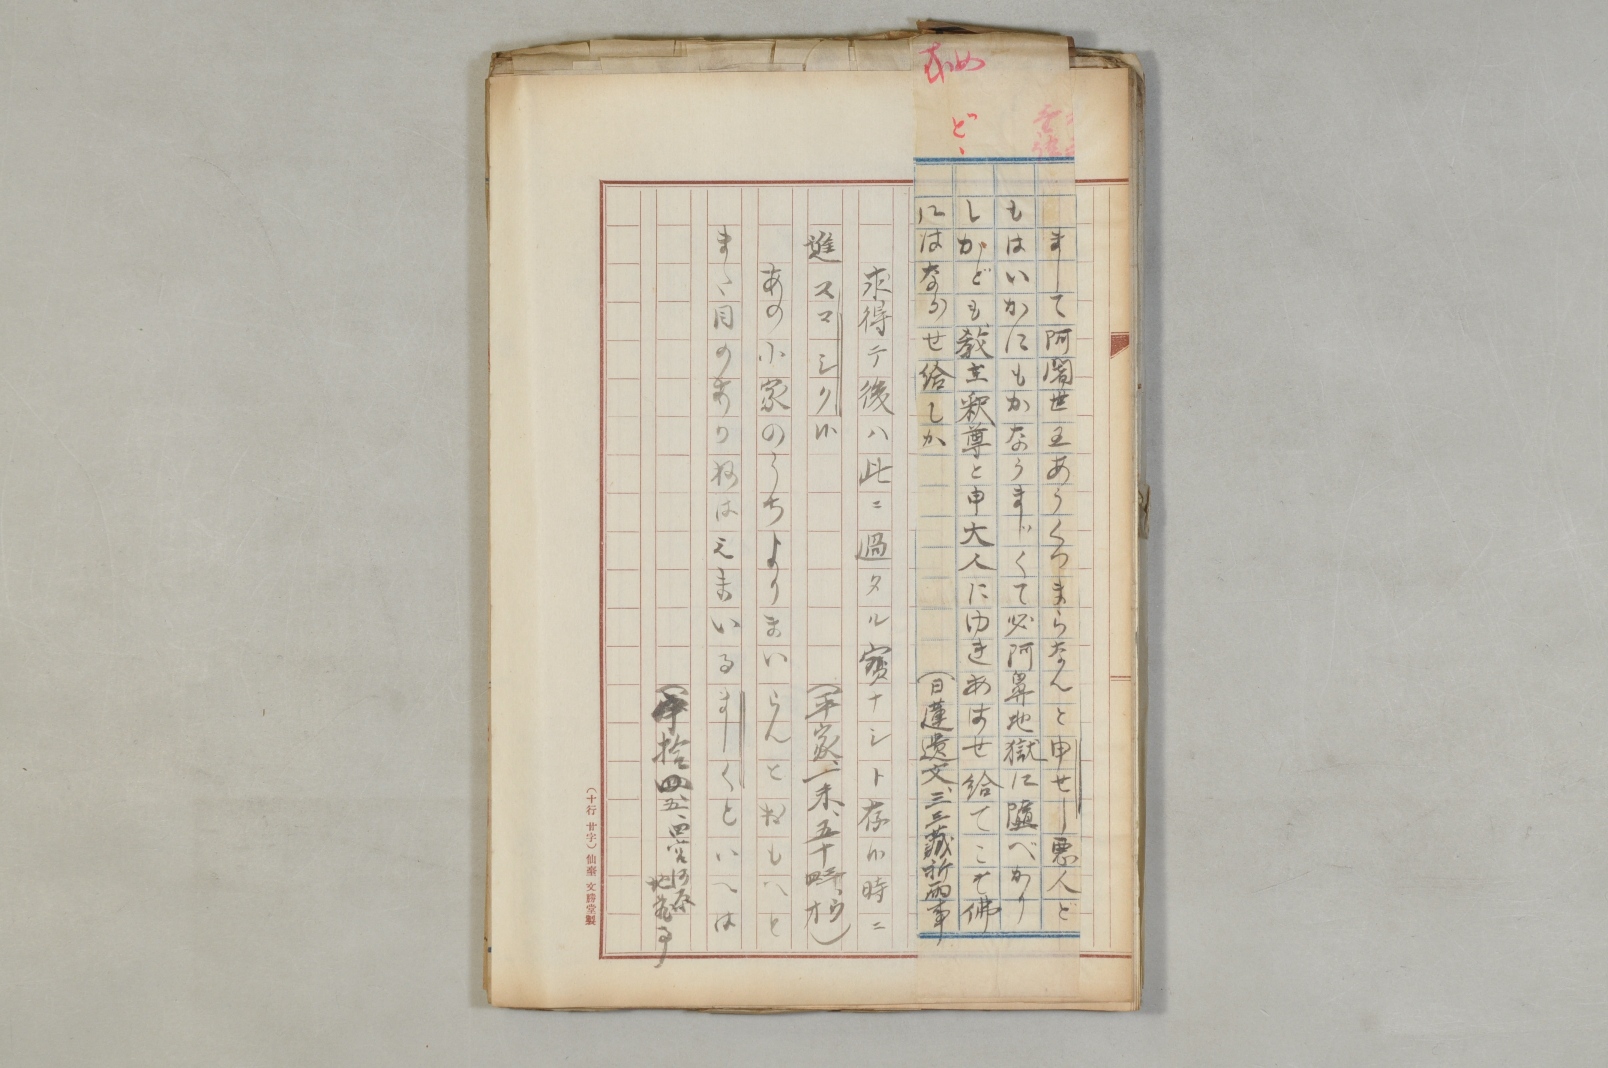 まして阿闍世王あうくつまらなんと申せし悪人ど
もはいかにもかなうまじくて必阿鼻地獄に墮べかり
しかども教主釈尊と申大人にゆきあはせ給てこそ佛
にはならせ給しか
(日蓮遺文、三三蔵祈雨事
求得テ後ハ此ニ過タル寳ナシト存候時ニ
進スマシク候
(平家、一末、五十
あの小家のうちよりまいらんとおもへと
また目のありねはえまいるましくといへは
拾四五、
ど、
(十行 廿字) 仙臺 文勝堂製